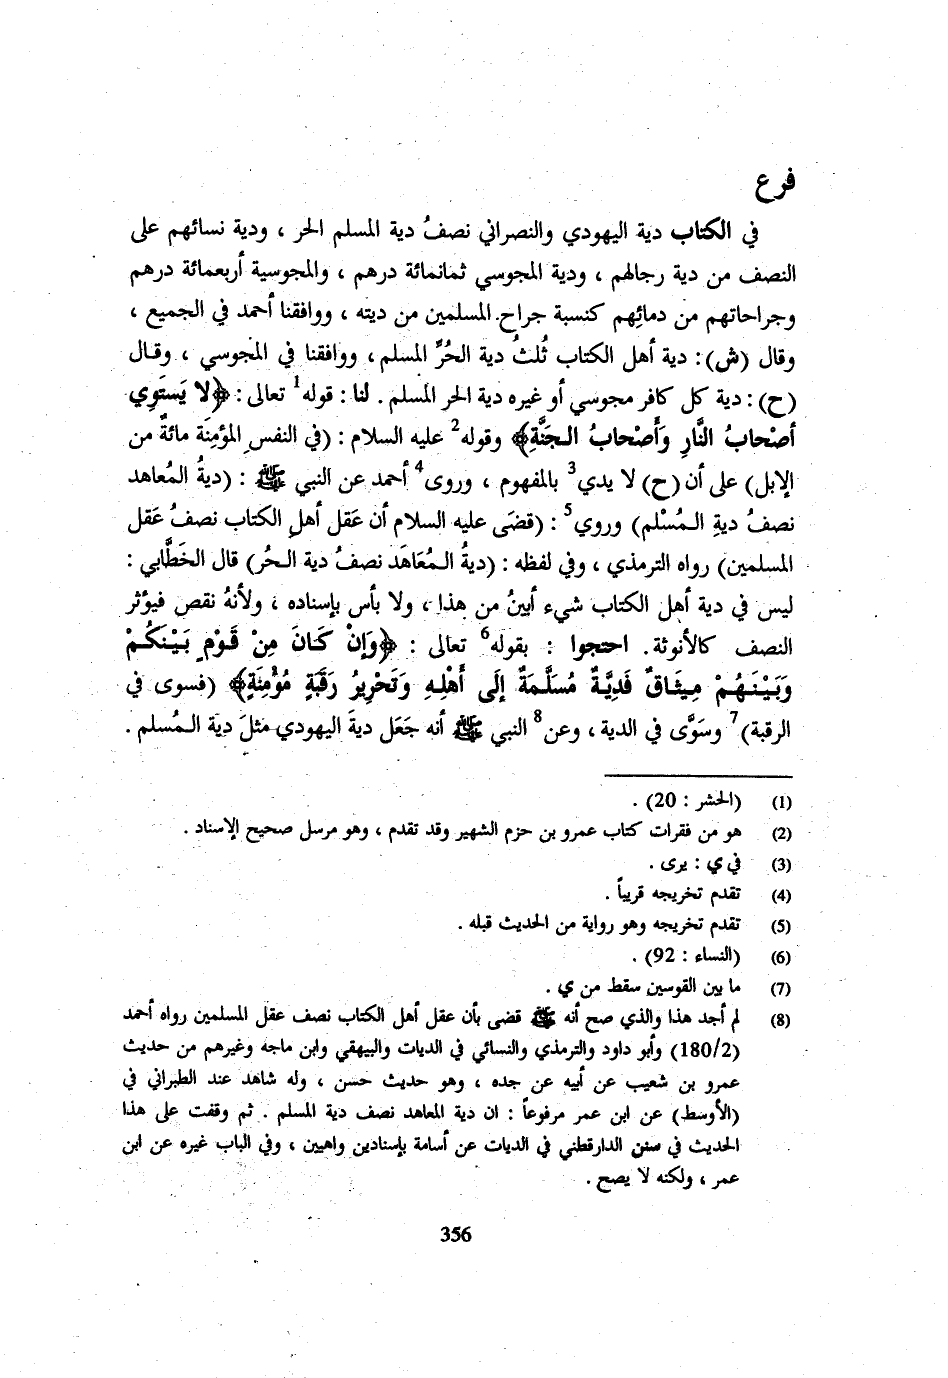 فرع
في الكتاب دية اليهودي والنصراني نصفُ دية المسلم الحر ، ودية نسائهم على
النصف من دية رجالهم ، ودية المجوسي ثمانمائة درهم ، والمجوسية أربعمائة درهم
وجراحاتهم من دمائِهم كنسبة جراح المسلمين من ديته ، ووافقنا أحمد في الجميع ،
وقال (ش) : دية أهل الكتاب ثُلثُ دية الحُرِّ المسلم ، ووافقنا في المجوسي ، وقال
(ح) : دية كل كافر مجوسي أو غيره دية الحر المسلم . لنا : قوله1 تعالى : ﴿لا يَستَوِي
أصْحابُ النَّارِ وَأصْحابُ الجَنَّةِ﴾ وقوله2 عليه السلام : (في النفسِ المؤمِنَة مائةٌ من
الإبل) على أن (ح) لا يدي3 بالمفهوم ، وروى4 أحمد عن النبي ﷺ : (ديةُ المُعاهد
نصفُ ديةِ المُسْلم) وروي5 : (قضَى عليه السلام أن عَقل أهلِ الكتاب نصفُ عَقل
المسلمين) رواه الترمذي ، وفي لفظه : (ديةُ المُعَاهَد نصفُ دية الحُر) قال الخَطَّابي :
ليس في دية أهل الكتاب شيء أبينُ من هذا ، ولا بأس بإسناده ، ولأنهُ نقص فيؤثر
النصف كالأنوثة . احتجوا : بقوله6 تعالى : ﴿وَإنْ كَـانَ مِنْ قَـوْمٍ بَـيْـنَـكُـمْ
وَبَـيْـنَـهُـمْ مِـيثَـاقٌ فَدِيَّـةٌ مُسَلَّـمَةٌ إلَى أهْلـهِ وَتَحْرِيرُ رَقَبَةٍ مُؤْمِنَةٍ﴾ (فسوى في
الرقبة)7 وسَوَّى في الدية ، وعن8 النبي ﷺ أنه جَعَل ديةَ اليهودي مثلَ دية المُسلم .
(1) (الحشر : 20) .
(2) هو من فقرات كتاب عمرو بن حزم الشهير وقد تقدم ، وهو مرسل صحيح الإسناد .
(3) في ي : يرى .
(4) تقدم تخريجه قريباً .
(5) تقدم تخريجه وهو رواية من الحديث قبله .
(6) (النساء : 92) .
(7) ما بين القوسين سقط من ي .
(8) لم أجد هذا والذي صح أنه ﷺ قضى بأن عقل أهل الكتاب نصف عقل المسلمين رواه أحمد
(180/2) وأبو داود والترمذي والنسائي في الديات والبيهقي وابن ماجه وغيرهم من حديث
عمرو بن شعيب عن أبيه عن جده ، وهو حديث حسن ، وله شاهد عند الطبراني في
(الأوسط) عن ابن عمر مرفوعاً : ان دية المعاهد نصف دية المسلم . ثم وقفت على هذا
الحديث في سنن الدارقطني في الديات عن أسامة بإسنادين واهيين ، وفي الباب غيره عن ابن
عمر ، ولكنه لا يصح .
356